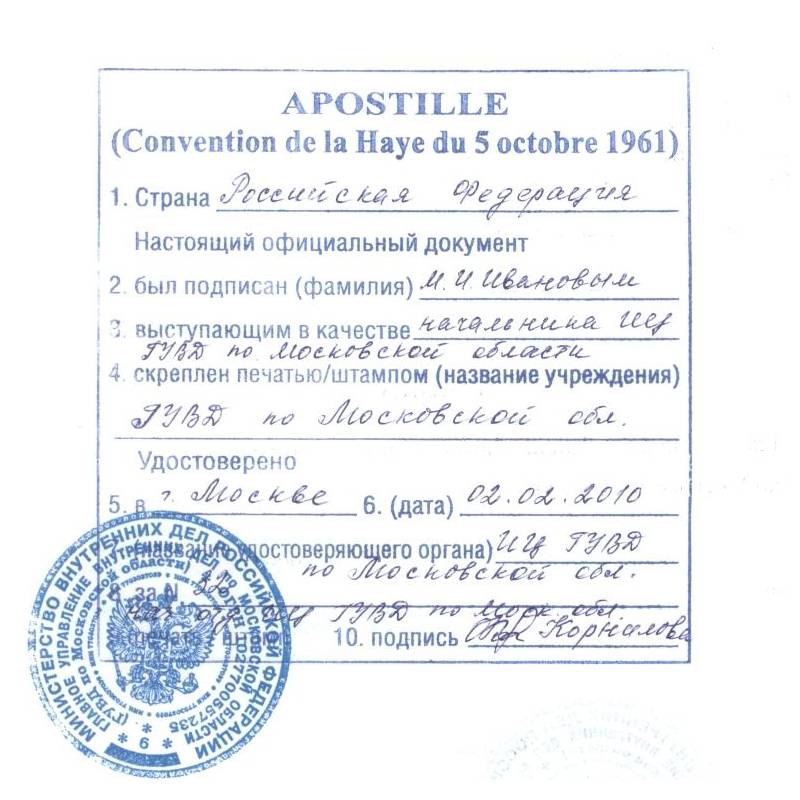 APOSTILLE
(Convention de la Haye du 5 octobre 1961)
1. Страна Российская Федерация
Настоящий официальный документ
2. был подписан (фамилия) М.И. Ивановым
3. выступающим в качестве начальника ИЦ
ГУВД по Московской области
4. скреплен печатью/штампом (название учреждения)
ГУВД по Московской обл.
Удостоверено
5. в г. Москве 6. (дата) 02.02.2010
(название удостоверяющего органа) ИЦ ГУВД
по Московской обл.
8. за N 32
нач. отд. ИЦ ГУВД по Моск. обл.
10. подпись Корнилова
МИНИСТЕРСТВО ВНУТРЕННИХ ДЕЛ РОССИЙСКОЙ ФЕДЕРАЦИИ
ГЛАВНОЕ УПРАВЛЕНИЕ ВНУТРЕННИХ ДЕЛ ПО МОСКОВСКОЙ ОБЛАСТИ
(ГУВД по Московской области)
* 9 *